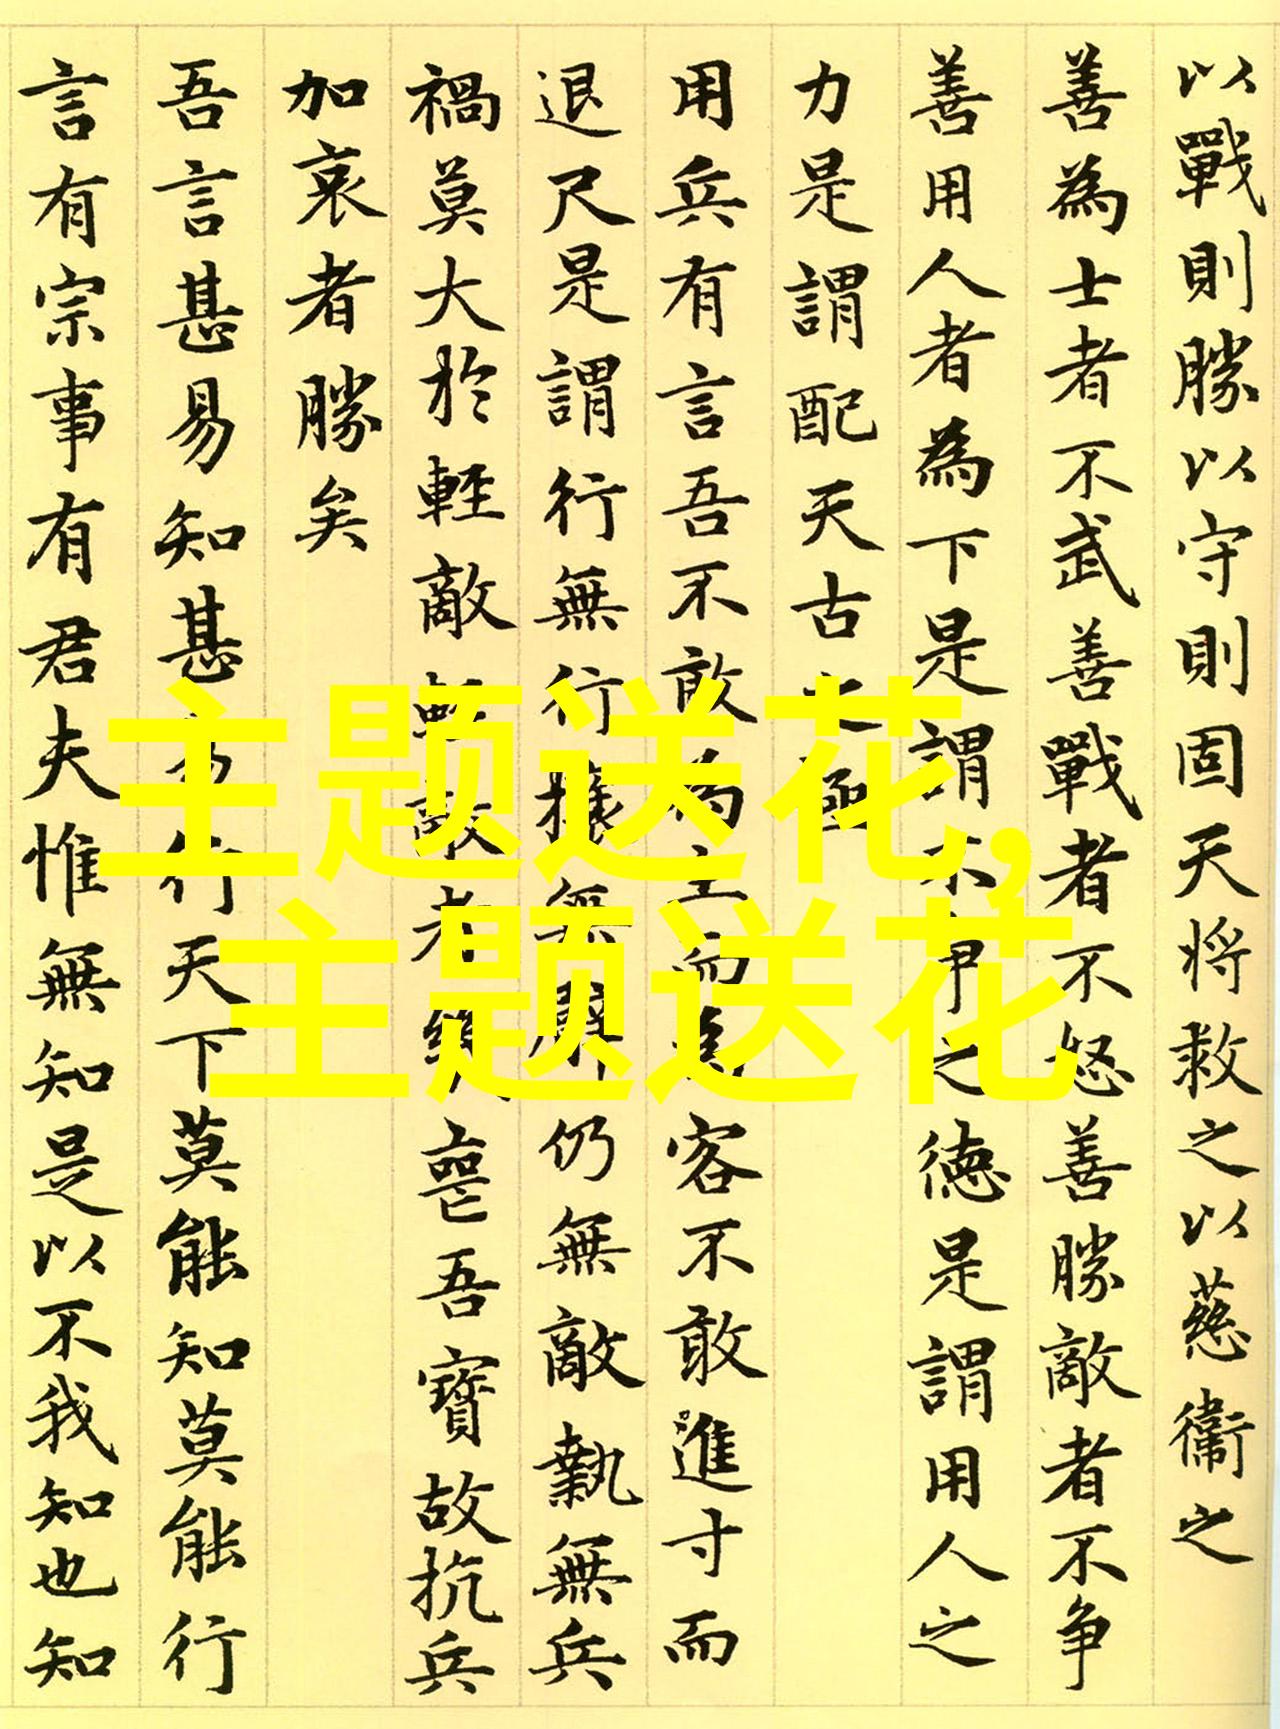 以戰則勝以守則固天将救之以慈衞之
善為士者不武善戰者不怒善勝敵者不争
善用人者為下是謂不争之德是謂用人之
力是謂配天古之極
用兵有言吾不敢為主而為客不敢進寸而
退尺是謂行無行攘無臂仍無敵執無兵
禍莫大於輕敵輕敵者幾喪吾寶故抗兵
加哀者勝矣
吾言甚易知甚易行天下莫能知莫能行
言有宗事有君夫惟無知是以不我知也知
主题送花,
主题送花